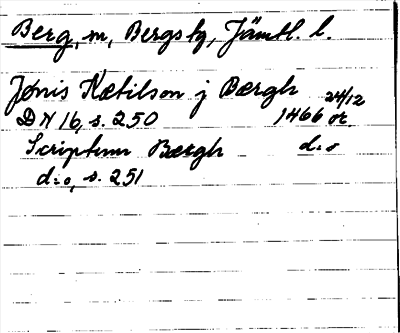 Berg, m, Bergs tg, Jämtl. l.
Jønis Kætilson j Bærgh 24/12
DN 16, s. 250 1466 or.
Scriptum Bærgh d:o
d:o, s. 251